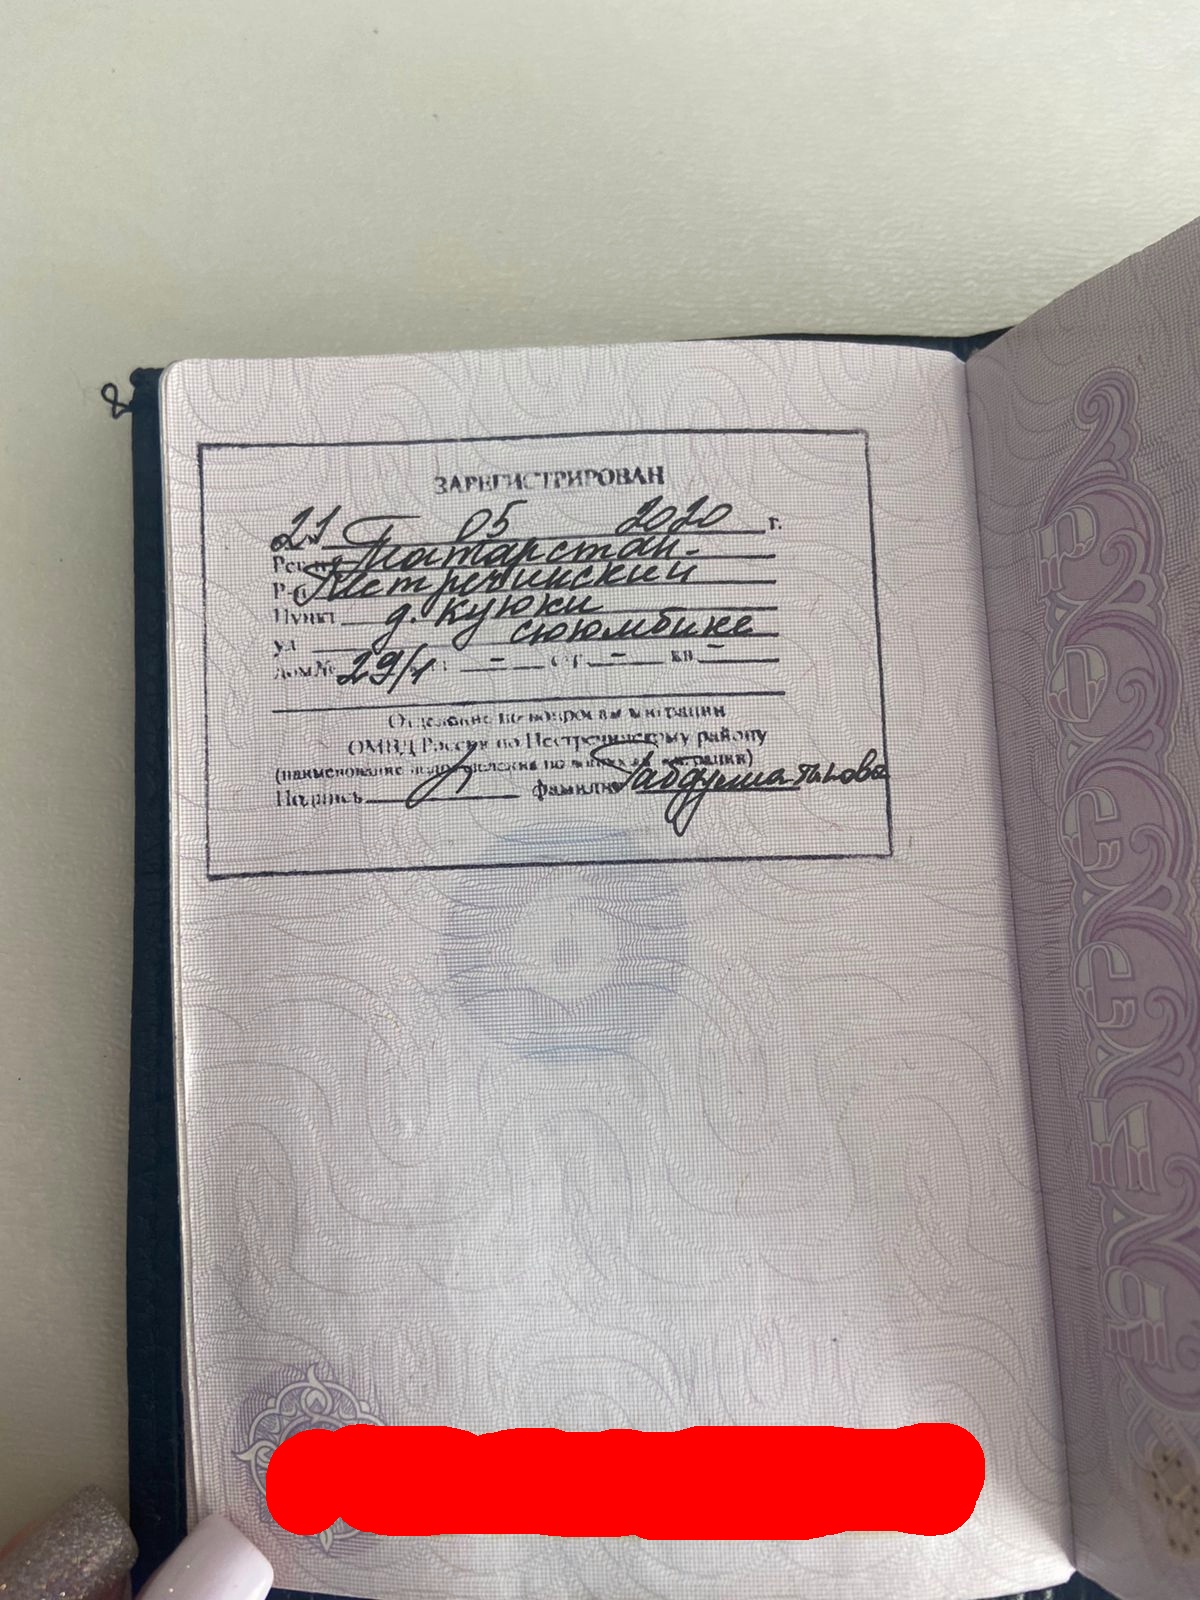 ЗАРЕГИСТРИРОВАН
21 05 2020 г.
Регион Татарстан
Р-н Пестречинский
Пункт д. Куюки
ул Сююмбике
Дом № 29/1 - СТ. - кв. -
Отделение по вопросам миграции
ОМВД России по Пестречинскому району
(наименование подразделения по вопросам миграции)
Подпись фамилия
РОССИЯ